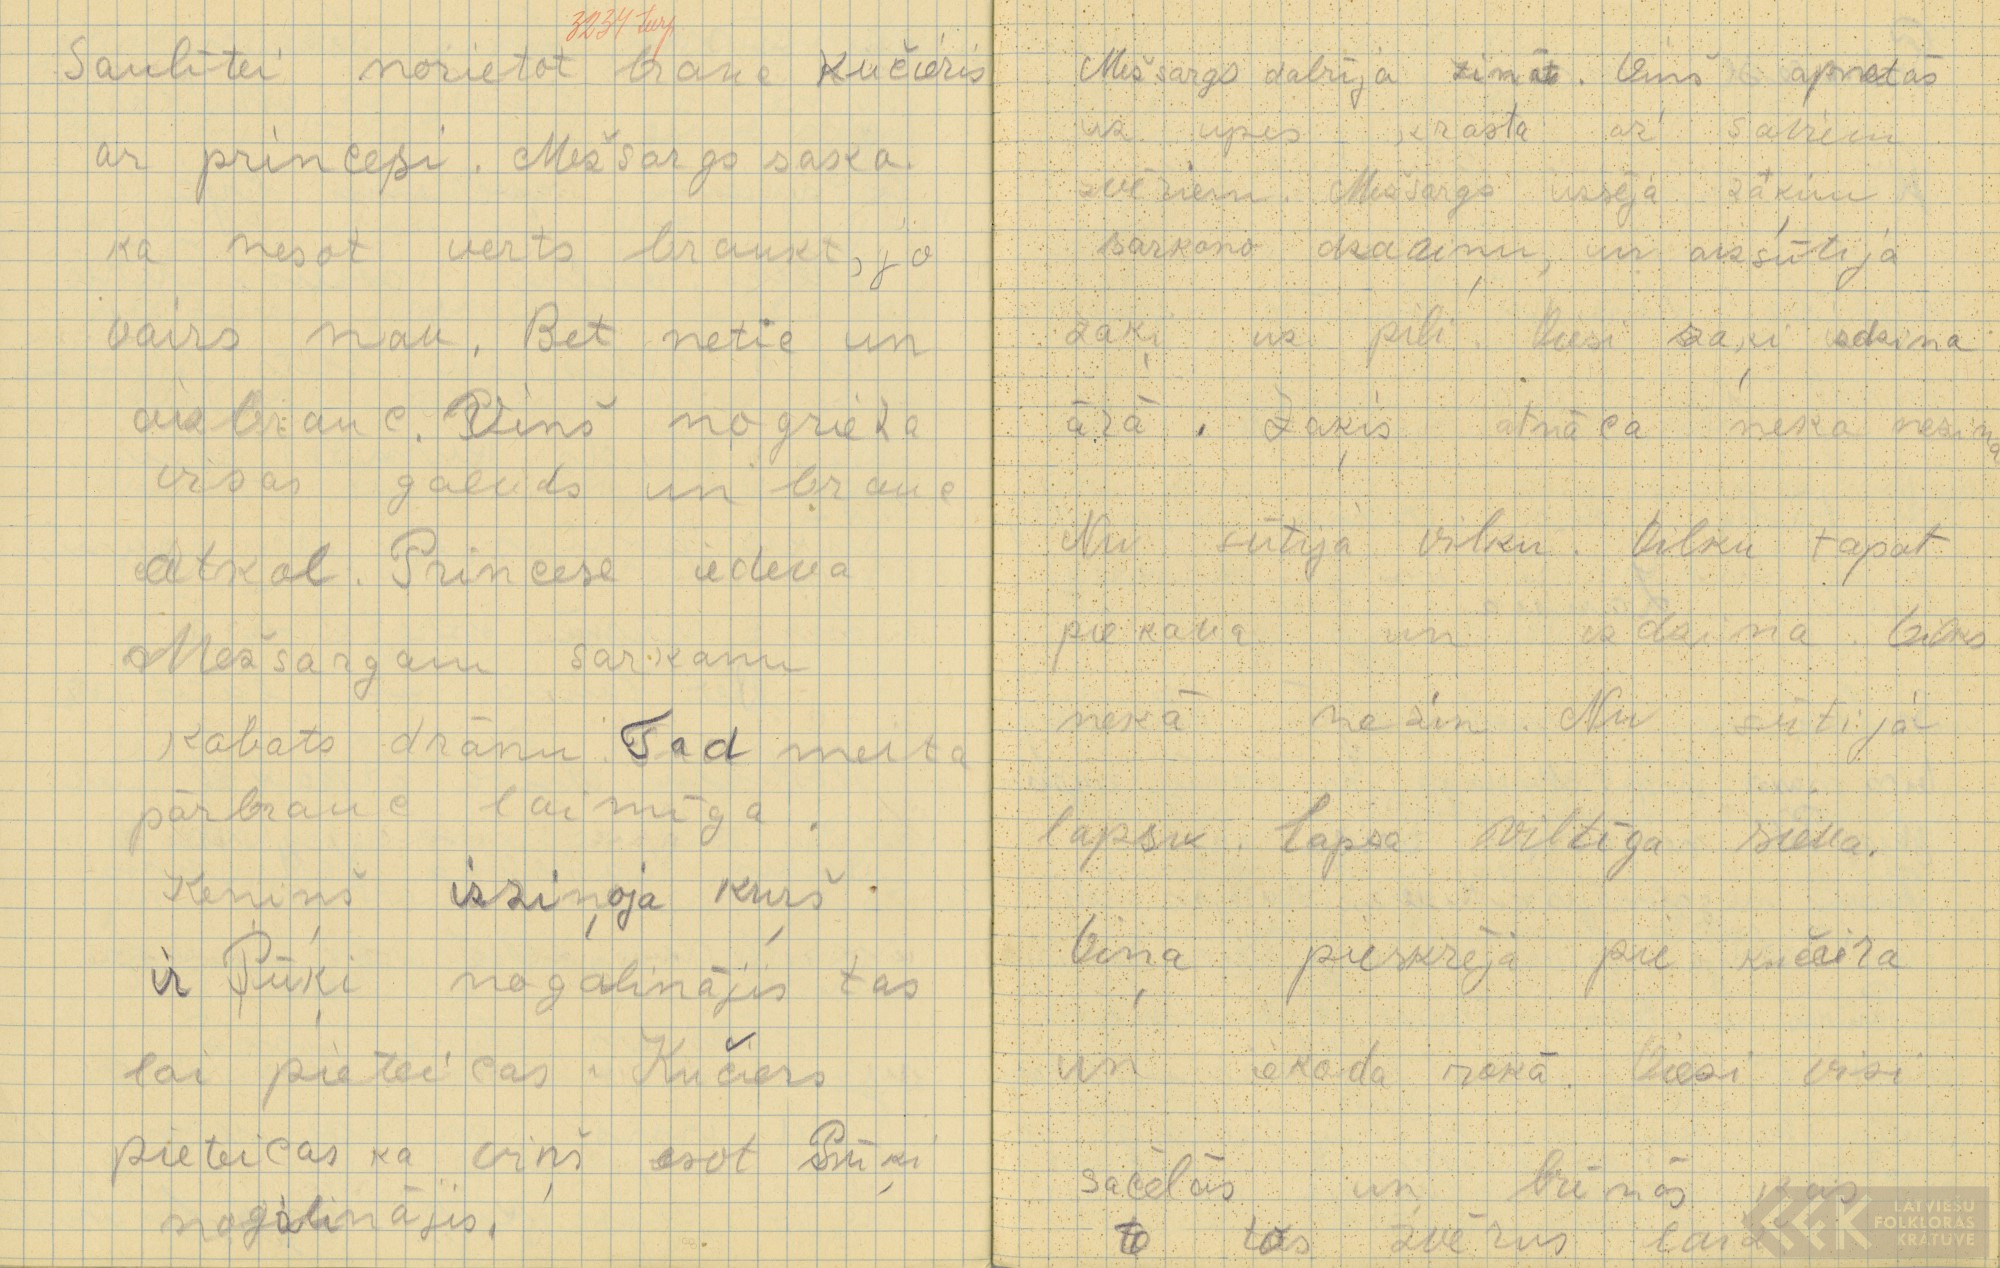 3234 turp.
Saulītei norietot brauc Kučieris
ar princesi. Mežsargs saka.
ka nesot verts braukt, jo
vairs nau. Bet netic un
aizbrauc. Viņš nogrieža
visas galvds un brauc
atkal. Princese iedeva
Mežsargam sarkanu
kabats drānu. Tad meita
pārbrauc laimīga.
Ķeniņš izziņoja kuŗš
ir Pūķi nogalinājis tas
lai pieteicas. Kučiers
pieteicas ka viņš esot Pūķi
nogalinājis.
Mežsargs dabrīja zināt. Viņš apmetās
uz upes krasta ar saviem
zvēriem. Mežsargs uzsēja zāķim
sarkano dzadiņu, un aizsūtija
zaķi uz pili. Viesi zaķi izdzina
ārā. Zaķis atnāca neka nezina
Nu sūtija vilku. Vilku tapat
piekava un izdzina. Vilks
nekā nezin. Nu sūtija
lapsu. Lapsa viltīga sieva.
Viņa pieskrēja pie kučiera
un iekoda rokā. Viesi visi
sacēlās un brīnās kas
to tos zvērus laiž
LATVIEŠU
FOLKLORAS
KRĀTUVE